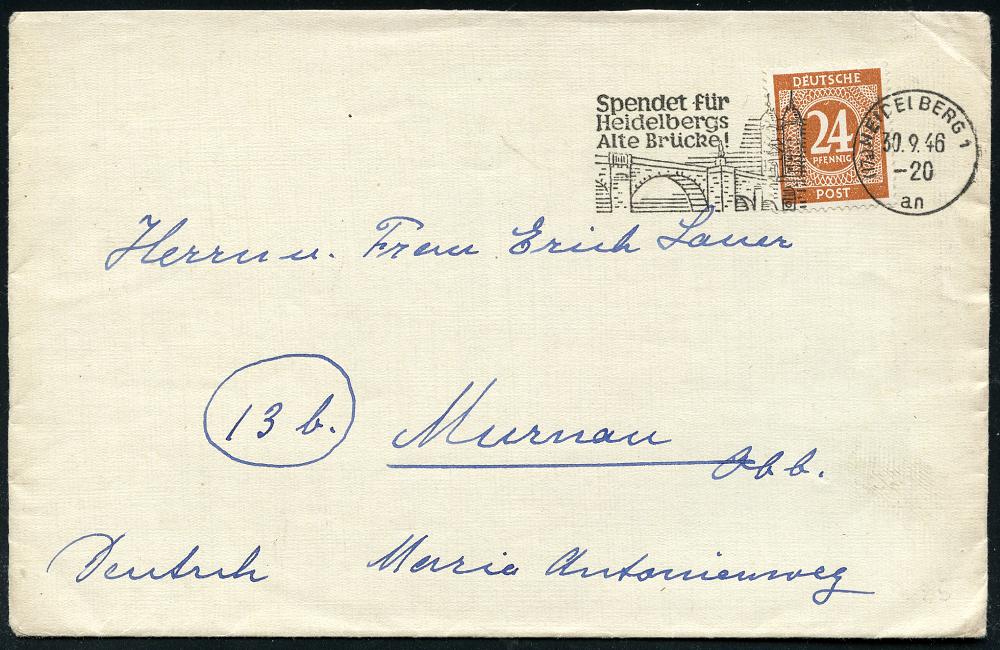 Spendet für
Heidelbergs
Alte Brücke!
DEUTSCHE
24
PFENNIG
POST
HEIDELBERG 1
30.9.46
-20
an
Herrn u. Frau Erich Lauer
13 b.
Murnau
Obb.
Deutsch Maria Antonienweg